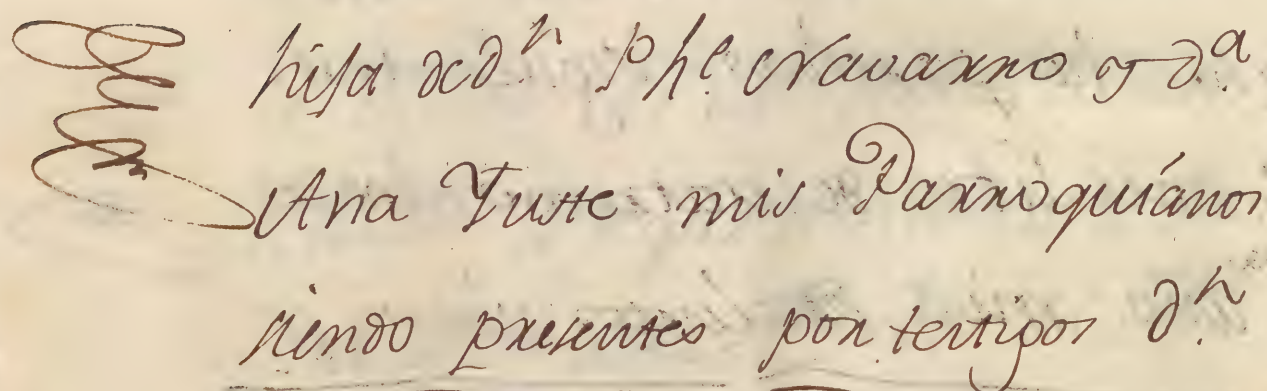 hija de d.n Ph.e Navarro y d.a
Ana Yuste mis Parroquianos
siendo presentes por testigos d.n